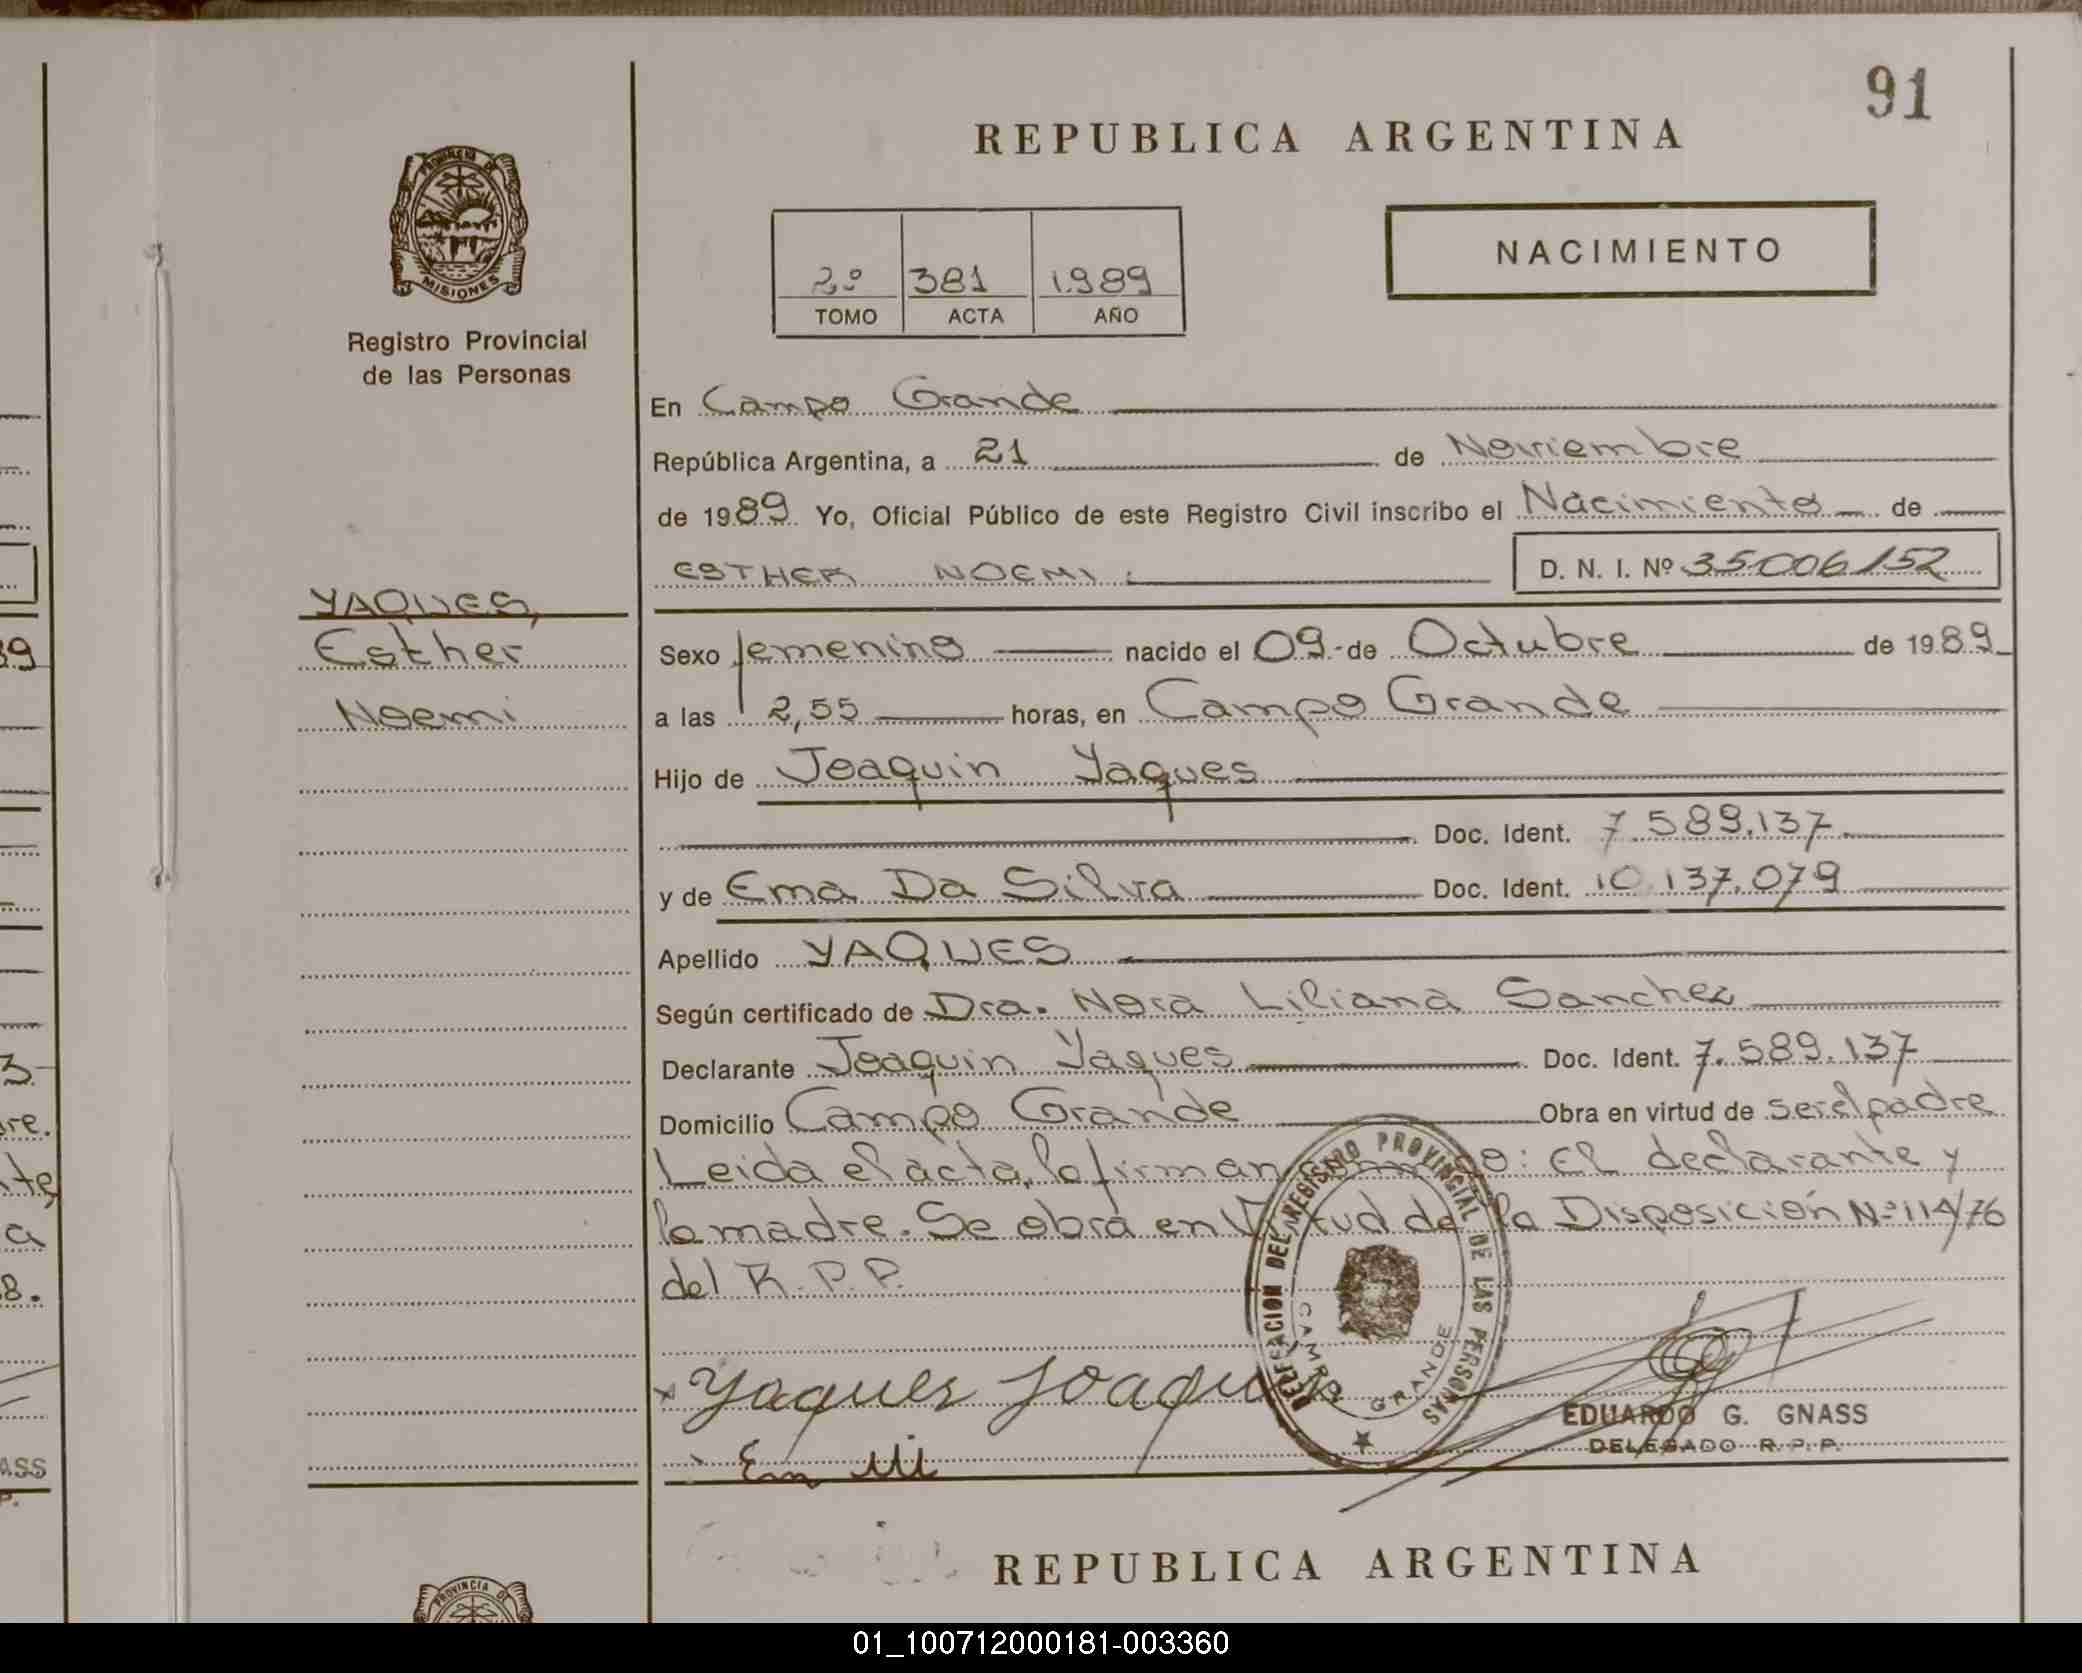 91
REPUBLICA ARGENTINA
PROVINCIA DE
MISIONES
Registro Provincial
de las Personas
NACIMIENTO
2º 381 1989
TOMO ACTA AÑO
En Campo Grande
República Argentina, a 21 de Noviembre
de 1989 Yo, Oficial Público de este Registro Civil inscribo el Nacimiento de
ESTHER NOEMI. D. N. I. Nº 35006152
YAQUES,
Esther
Noemi
Sexo femenino nacido el 09 - de Octubre de 1989
a las 2,55 horas, en Campo Grande
Hijo de Joaquin Yaques
Doc. Ident. 7.589.137
y de Ema Da Silva Doc. Ident. 10.137.079
Apellido YAQUES
Según certificado de Dra. Nora Liliana Sanchez
Declarante Joaquin Yaques Doc. Ident. 7.589.137
Domicilio Campo Grande Obra en virtud de ser el padre
Leida el acta, la firman conmigo: El declarante y
la madre. Se obra en Virtud de la Disposición Nº 114/76
del R.P.P.
DELEGACION DEL REGISTRO PROVINCIAL DE LAS PERSONAS
CAMPO GRANDE
Yaques Joaquin
EDUARDO G. GNASS
DELEGADO R. P. P.
REPUBLICA ARGENTINA
PROVINCIA DE
01_100712000181-003360